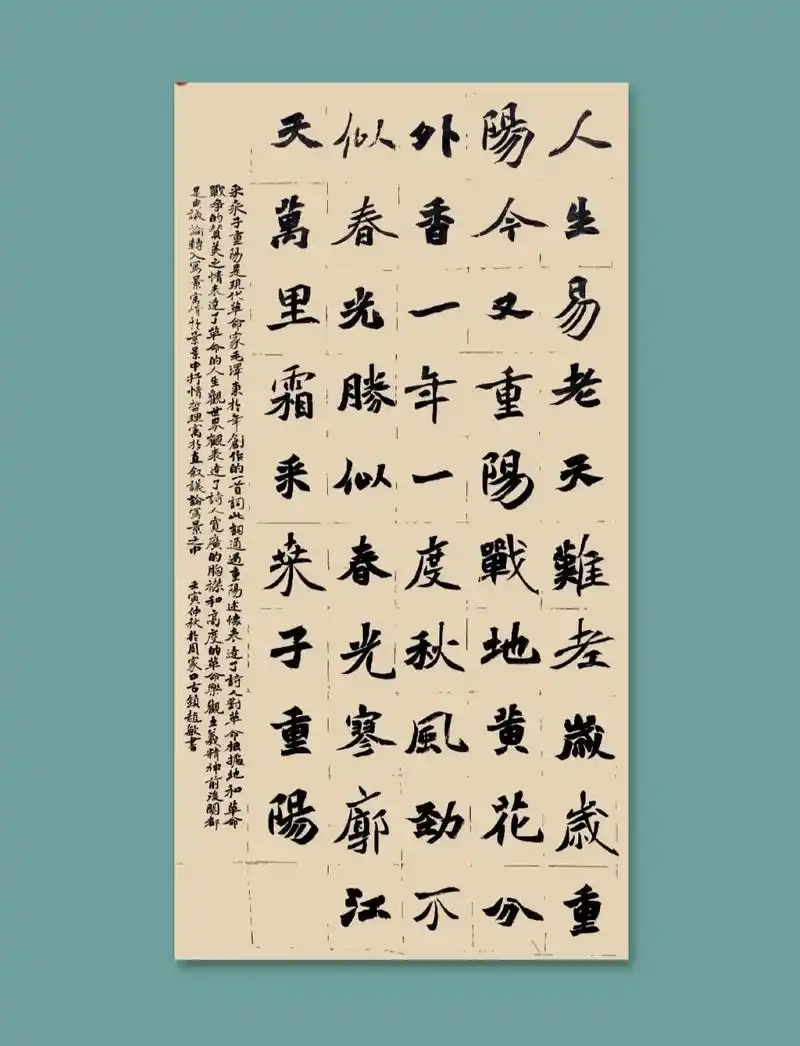 人生易老天難老歲歲重
陽今又重陽戰地黃花分
外香一年一度秋風勁不
似春光勝似春光寥廓江
天萬里霜采桑子重陽
采桑子重陽是現代革命家毛澤東於年創作的一首詞此詞通過重陽述懷表達了詩人對革命根據地和革命
戰爭的贊美之情表達了革命的人生觀世界觀表達了詩人寬廣的胸襟和高度的革命樂觀主義精神前後闋都
是由議論轉入寫景寓情於景景中抒情哲理寓於直叙議論寫景之中 壬寅仲秋於周家口古鎮趙敏書